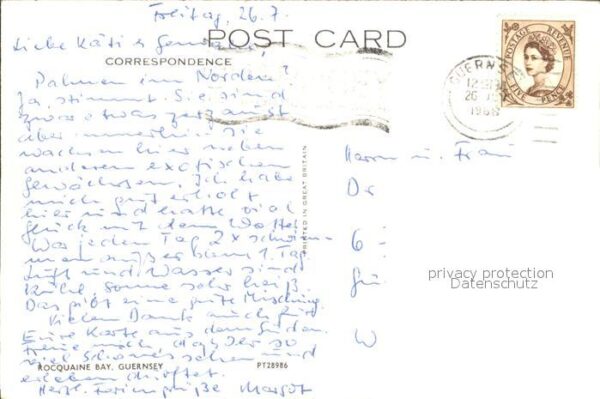 Freitag, 26.7.
POST CARD
CORRESPONDENCE
Liebe Käti &
Palmen im Norden?
Ja, stimmt. Sie sind
zwar etwas zerzaust
aber immerhin. Sie
wachsen hier neben
anderen exotischen
Gewächsen. Ich habe
mich gut erholt
hier und hatte viel
Glück mit dem Wetter.
War jeden Tag 2x schwim-
men außer beim 1. Tag
Luft und Wasser sind
kühl, Sonne sehr heiß.
Das gibt eine gute Mischung.
Vielen Dank auch für
Eure Karte aus dem Süden.
Freue mich, daß Ihr so
viel Schönes sehen und
erleben durftet.
Herzl. Feriengrüße Margot
ROCQUAINE BAY, GUERNSEY
PT28986
PRINTED IN GREAT BRITAIN
GUERNS
26
POSTAGE REVENUE
FIVE PENCE
Herrn u. Frau
Dr
6-
W
privacy protection
Datenschutz